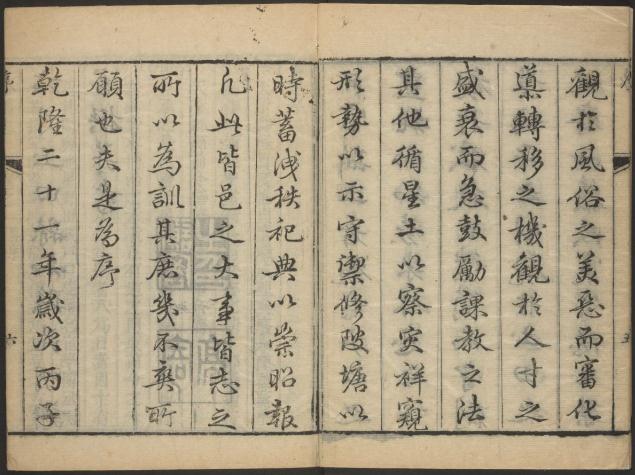 觀於風俗之美惡而審化
導轉移之機觀於人才之
盛衰而急鼓勵課教之法
其他循星土以察灾祥窺
形勢以示守禦修陂塘以
時蓄洩秩祀典以崇昭報
凡此皆邑之大事皆志之
所以為訓其庶幾不爽所
願也夫是為序
乾隆二十一年歲次丙子
序
六